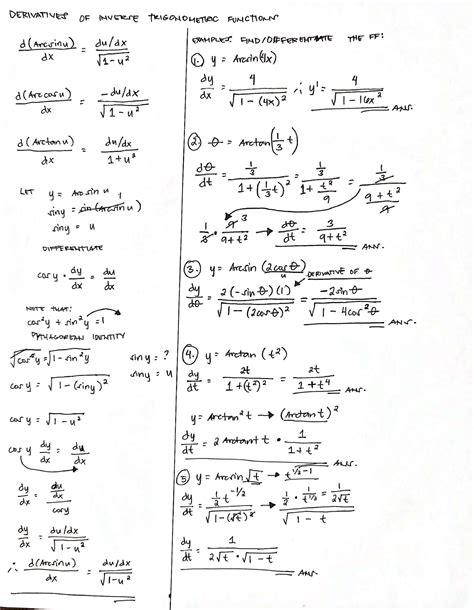 DERIVATIVES OF INVERSE TRIGONOMETRIC FUNCTIONS
d(Arcsinu)/dx = du/dx / √(1-u²)
d(Arccosu)/dx = -du/dx / √(1-u²)
d(Arctanu)/dx = du/dx / 1+u²
LET y = Arcsin u
siny = sin(Arcsinu) 1
siny = u
DIFFERENTIATE
cosy · dy/dx = du/dx
NOTE THAT:
cos²y + sin²y = 1
PYTHAGOREAN IDENTITY
√cos²y = √1-sin²y siny = ?
cosy = √1-(siny)² siny = u
cosy = √1-u²
cosy dy/dx = du/dx
dy/dx = du/dx / cosy
dy/dx = du/dx / √1-u²
∴ d(Arcsinu)/dx = du/dx / √1-u²
EXAMPLES: FIND/DIFFERENTIATE THE FF:
1. y = Arcsin(4x)
dy/dx = 4 / √1-(4x)² ∴ y' = 4 / √1-16x² ANS.
2 θ = Arctan(1/3 t)
dθ/dt = 1/3 / 1+(1/3 t)² = 1/3 / 1+t²/9 = 1/3 / 9+t²/9
1/3 · 9 3/9+t² → dθ/dt = 3/9+t² ANS.
3. y = Arcsin (2cosθ) u DERIVATIVE OF θ
dy/dθ = 2(-sinθ)(1) / √1-(2cosθ)² = -2sinθ / √1-4cos²θ ANS.
4. y = Arctan (t²)
dy/dt = 2t / 1+(t²)² = 2t / 1+t⁴ ANS.
y = Arctan²t → (Arctan t)²
dy/dt = 2 Arctant t · 1 / 1+t² ANS.
5 y = Arcsin √t → t^1/2-1
dy/dt = 1/2 t^-1/2 / √1-(√t)² → 1/2 · 1/t^1/2 = 1/2√t / √1-t
dy/dt = 1 / 2√t · √1-t ANS.